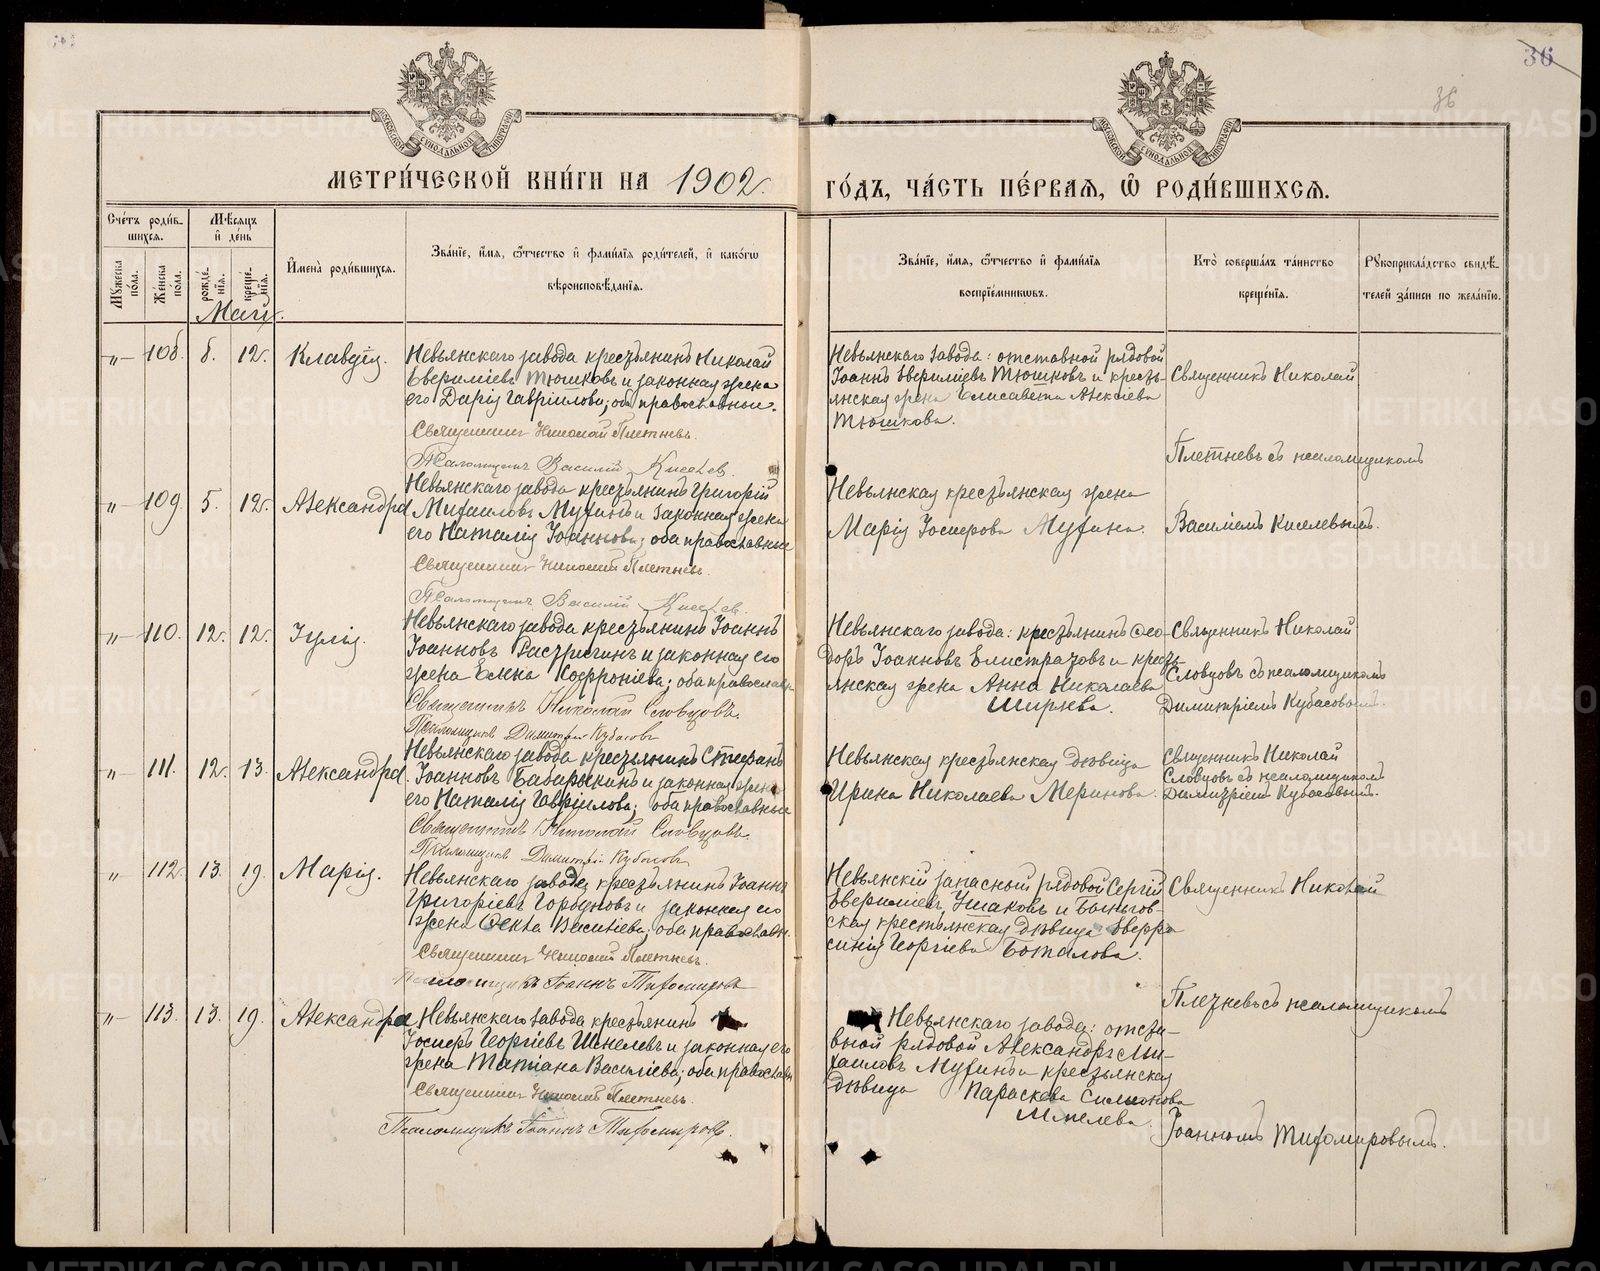 36
36
МОСКОВСКОЙ СѴНОДАЛЬНОЙ ТИПОГРАФІИ
МОСКОВСКОЙ СѴНОДАЛЬНОЙ ТИПОГРАФІИ
МЕТРИ́ЧЕСКОЙ КНИ́ГИ НА 1902. ГО́ДЪ, ЧА́СТЬ ПЕ́РВАЯ, Ѿ РОДИ́ВШИХСЯ.
Сче́тъ роди́вшихся.
Мѣ́сяцъ и де́нь
Мꙋжеска по́ла.
Же́нска по́ла.
рожде́нїя.
креще́нїя.
И҆мена̀ роди́вшихся.
Зва́нїе, и҆́мя, ѻ҆́тчество и҆ фами́лїя роди́телей, и҆ како́гѡ
вѣроисповѣ́данїя.
Зва́нїе, и҆́мя, ѻ҆́тчество и҆ фами́лїя
воспрїе́мникѡвъ.
Кто̀ соверша́лъ та́инство
креще́нїя.
Рꙋкоприкла́дство свидѣ́телей за́писи по жела́нїю.
Маій.
„ 108. 8. 12. Клавдія.
Невьянскаго завода крестьянинъ Николай
Еверилиевъ Тюшковъ и законная жена
его Дарія Гавріилова; оба православные.
Священникъ Николай Плетневъ.
Псаломщикъ Василій Киселев.
Невьянскаго завода: отставной рядовой
Іоаннъ Еверилиевъ Тюшковъ и кресть-
янская жена Елисавета Алексіева
Тюшкова.
Священникъ Николай
Плетневъ съ псаломщикомъ
„ 109. 5. 12. Александра
Невьянскаго завода крестьянинъ Григорій
Михаиловъ Мухинъ и законная жена
его Наталія Іоаннова; оба православные
Священникъ Николай Плетневъ.
Псаломщикъ Василій Киселев.
Невьянская крестьянская жена
Марія Іосифова Мухина.
Василіемъ Киселевымъ.
„ 110. 12. 12. Іулія.
Невьянскаго завода крестьянинъ Іоаннъ
Іоанновъ Растригинъ и законная его
жена Елена Софроніева; оба православн.
Священникъ Николай Словцовъ.
Псаломщикъ Димитрій Кубасовъ
Невьянскаго завода: крестьянинъ Ѳео-
доръ Іоанновъ Елистратовъ и кресть-
янская жена Анна Николаева
Ширяева.
Священникъ Николай
Словцовъ съ псаломщикомъ
Димитріемъ Кубасовымъ.
„ 111. 12. 13. Александра
Невьянскаго завода крестьянинъ Стефанъ
Іоанновъ Бабарыкинъ и законная жена
его Наталія Гавріилова; оба православные
Священникъ Николай Словцовъ.
Псаломщикъ Димитрій Кубасовъ
Невьянская крестьянская дѣвица
Ирина Николаева Меринова.
Священникъ Николай
Словцовъ съ псаломщикомъ
Димитріемъ Кубасовымъ.
„ 112. 13. 19. Марія.
Невьянскаго завода крестьянинъ Іоаннъ
Григоріевъ Горбуновъ и законная его
жена Ѳекла Василіева; оба православн.
Священникъ Николай Плетневъ.
Псаломщикъ Іоаннъ Тихомировъ
Невьянскій запасной рядовой Сергій
Ушаковъ и Быньгов-
ская крестьянская дѣвица Евфро
синія Георгіева Боталова.
Священникъ Николай
Плетневъ съ псаломщикомъ
„ 113. 13. 19. Александра
Невьянскаго завода крестьянинъ
Іосифъ Георгіевъ Шмелевъ и законная его
жена Татіана Василіева; оба православн
Священникъ Николай Плетневъ.
Псаломщикъ Іоаннъ Тихомировъ.
Невьянскаго завода: отста-
вной рядовой Александръ Ми-
хаиловъ Мухинъ и крестьянская
дѣвица Параскева Симонова
Шмелева.
Іоанномъ Тихомировымъ.
METRIKI.GASO-URAL.RU